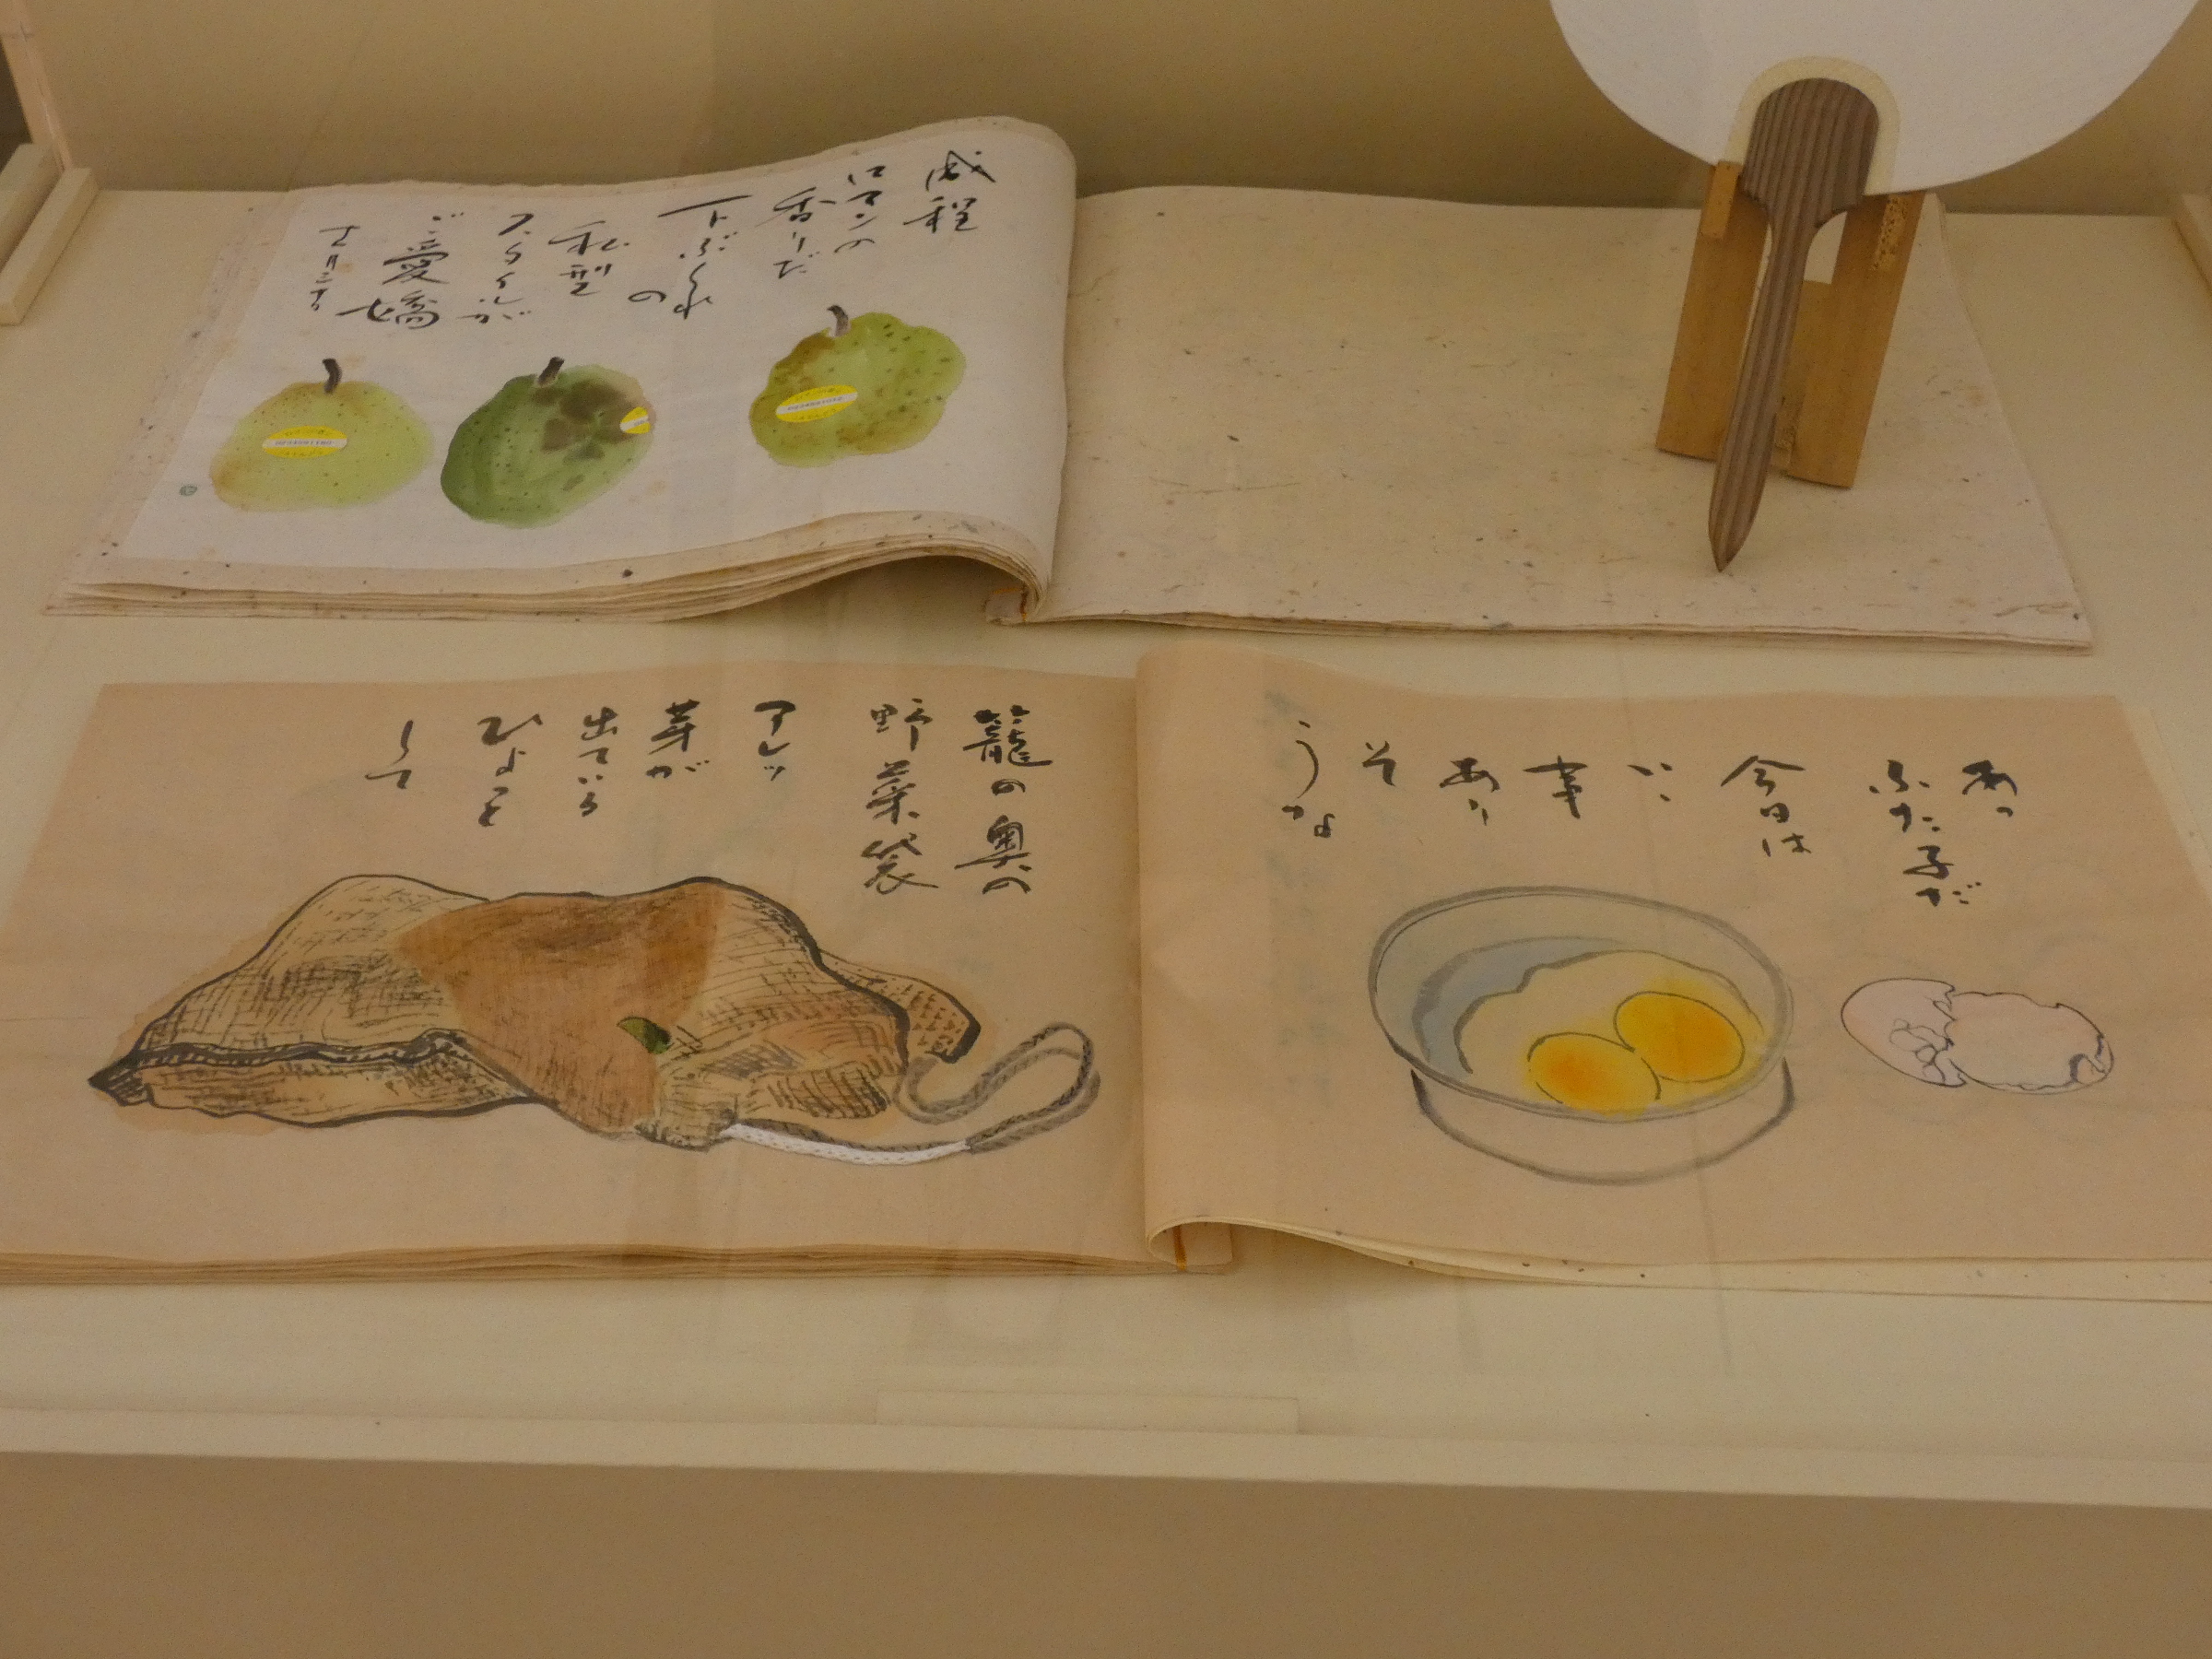 成程
ロマンの
香りだ
下ぶくれ
の
私型
スタイルが
ご愛嬌
籠の奥の
野菜袋
アレッ
芽が
出ている
ひょこと
して
あっ
ふた子だ
今日は
いい
事
あり
そ
うな